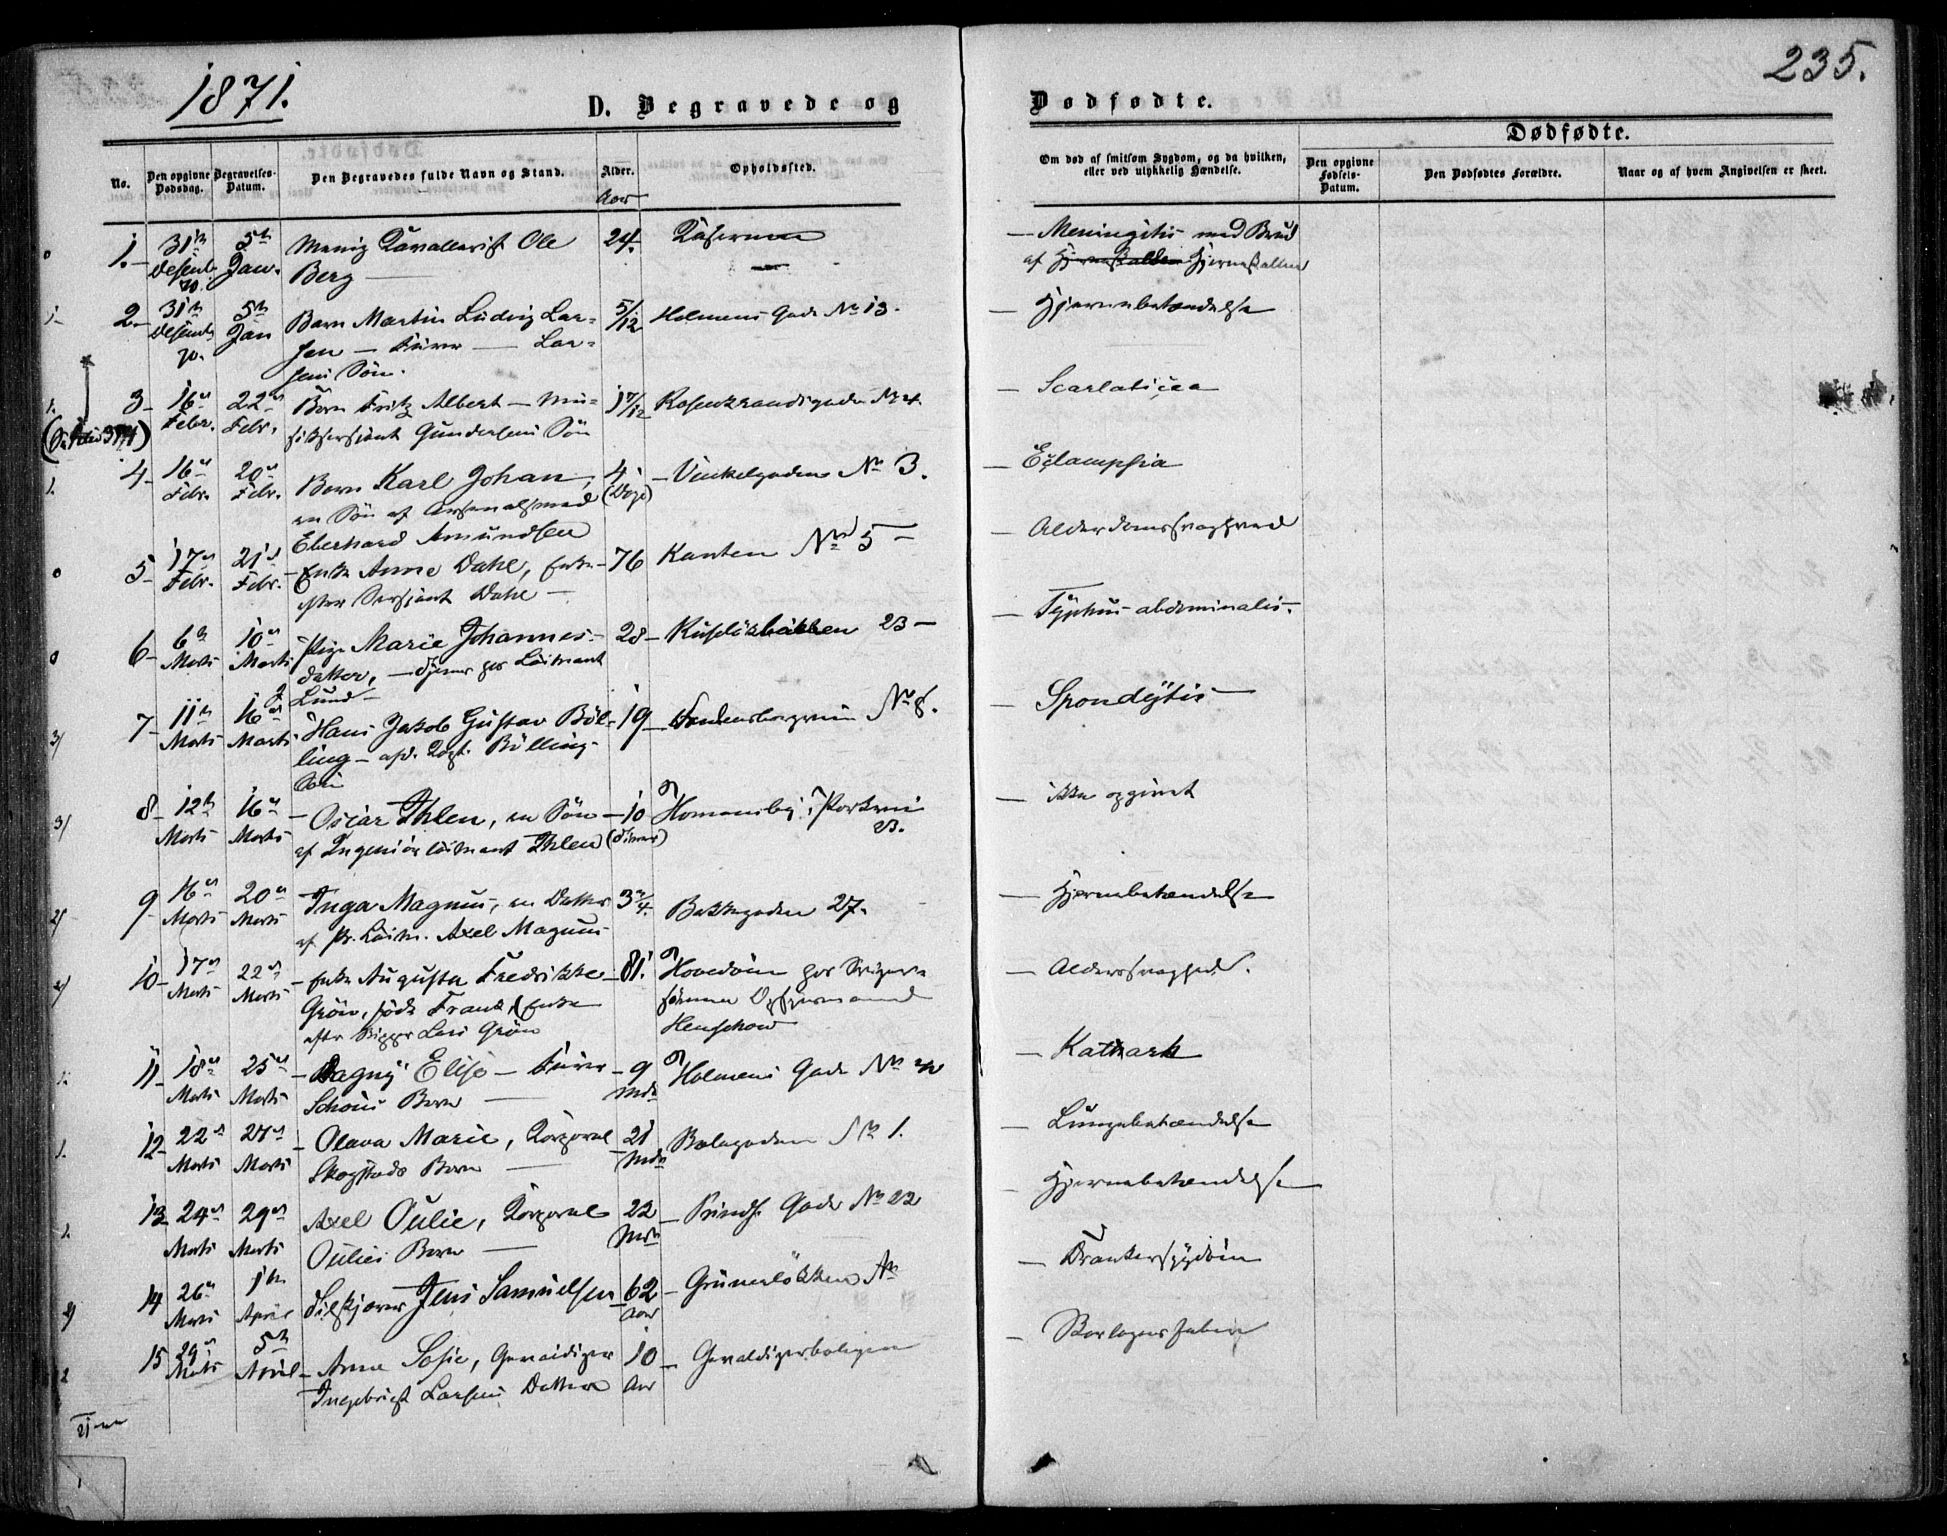 1871.
235.
D. Begravede og
Dødfødte.
Dødfødte.
No.
Den opgivne Dødsdag.
Begravelses-Datum.
Den Begravedes fulde Navn og Stand.
Alder.
Aar
Opholdssted.
Om død af smitsom Sygdom, og da hvilken,
eller ved ulykkelig Hændelse.
Den opgivne Fødsels-Datum.
Den Dødfødtes Forældre.
Naar og af hvem Angivelsen er skeet.
1. 31te 5te Menig Kavallerist Ole 24. Kasernen — Meningitis med Brud
Desemb. 70. Jan. Berg af Hjerneskallen Hjerneskallen
2. 31te 5te Barn Martin Ludvig Lar= 5/12 Holmens Gade No 13. — Hjernebetændelse
Desemb. 70. Jan sen — Furer — Lar=
sens Søn.
3 16de 22de Barn Fritz Albert — Mu= 17/12 Rosenkrandsgaden No 4. — Scarlatina
Febr. Febr. siksersjant Gundersens Søn
4 16de 20de Barn Karl Johan, 4 — Vinkelgaden No 3. — Eclampsia
Febr. Febr. en Søn af Arsenalsmed (Dage)
Eberhard Amundsen
5 17de 21de Enke Anne Dahl, Enke 76 Kanten No 5 — Alderdomssvaghed
Febr. Febr. efter Sersjant Dahl
6 6te 10de Pige Marie Johannes- 28 Ruseløkbakken 23 — Typhus abdominalis.
Marts Marts datter, — tjener hos Løitnant
Lund
7 11te 16de Hans Jakob Gustav Böl- 19 No 8. — Spondylis
Marts Marts ling — afd. Kapt. Bölling-
Søn
8 12te 16de Oscar Ihlen, en Søn 10 Homansby, Parkvei 23. — ikke opgivet
Marts Marts af Ingeniørløitnant Ihlen (Timer)
9 16de 20de Inga Magnus, en Datter 3 3/4. Bakkegaden 27. — Hjernebetændelse
Marts Marts af Pr. Løitn. Axel Magnus
10 17de 22de Enke Augusta Fredrikke 81. Hovedøen hos Sviger= — Alderssvaghed.
Marts Marts Grøn, født Frantz, Enke sønnen Opsynsmand
efter Skipper Lars Grøn Henschow
11 18de 25de Dagny Elise — Furer 9 Holmens Gade No — Katharh
Marts Marts Schous Barn Mdr
12 22de 27de Olava Marie, Korporal 21 gaden No 1. — Lungebetændelse
Marts Marts Skogstads Barn Mdr
13 24de 29de Axel Oulie, Korporal 22 Prinds. Gade No 22 — Hjernebetændelse
Marts Marts Oulies Barn Mdr
14 26de 1te Jens Samuelsen 62 Grünerløkken — Drankersygdom
Marts April Aar
15 29de 5te Anne Sofie, Gevaldiger 10 Gevaldigerboligen — Skarlagensfeber
Marts April Ingebrigt Larsens Datter Aar